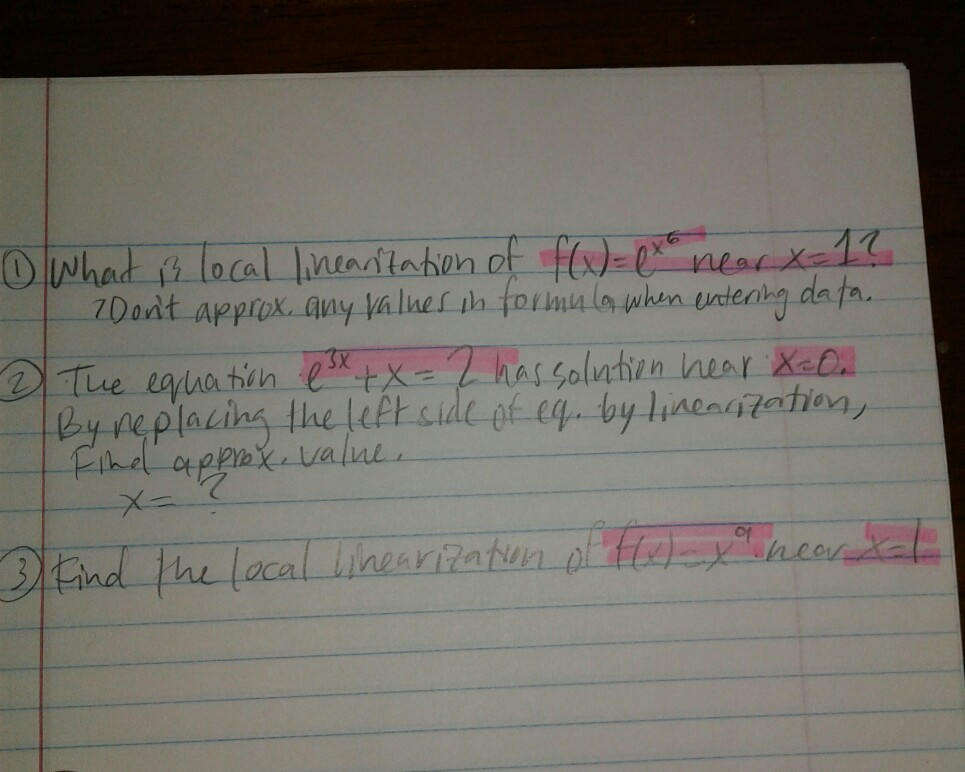 ① What is local linearitation of f(x)=e^x^6 near x=1?
?Don't approx. any values in formula when entering data.
② The equation e^3x + x = 2 has solution near x=0.
By replacing the left side of eq. by linearization,
Find approx. value.
x= ?
③ Find the local linearization of f(x)=x^9 near x=1